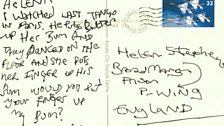 HELEN!
I WATCHED LAST TANGO
IN PARIS. HE PUTS BUTTER
UP HER BUM AND
THEY DANCED ON THE
FLOOR AND SHE PUTS
HER FINGER UP HIS
BUM WOULD YOU PUT
YOUR FINGER UP
MY BUM?
32
Helen Stephens
Prison
P-WING
ENGLAND